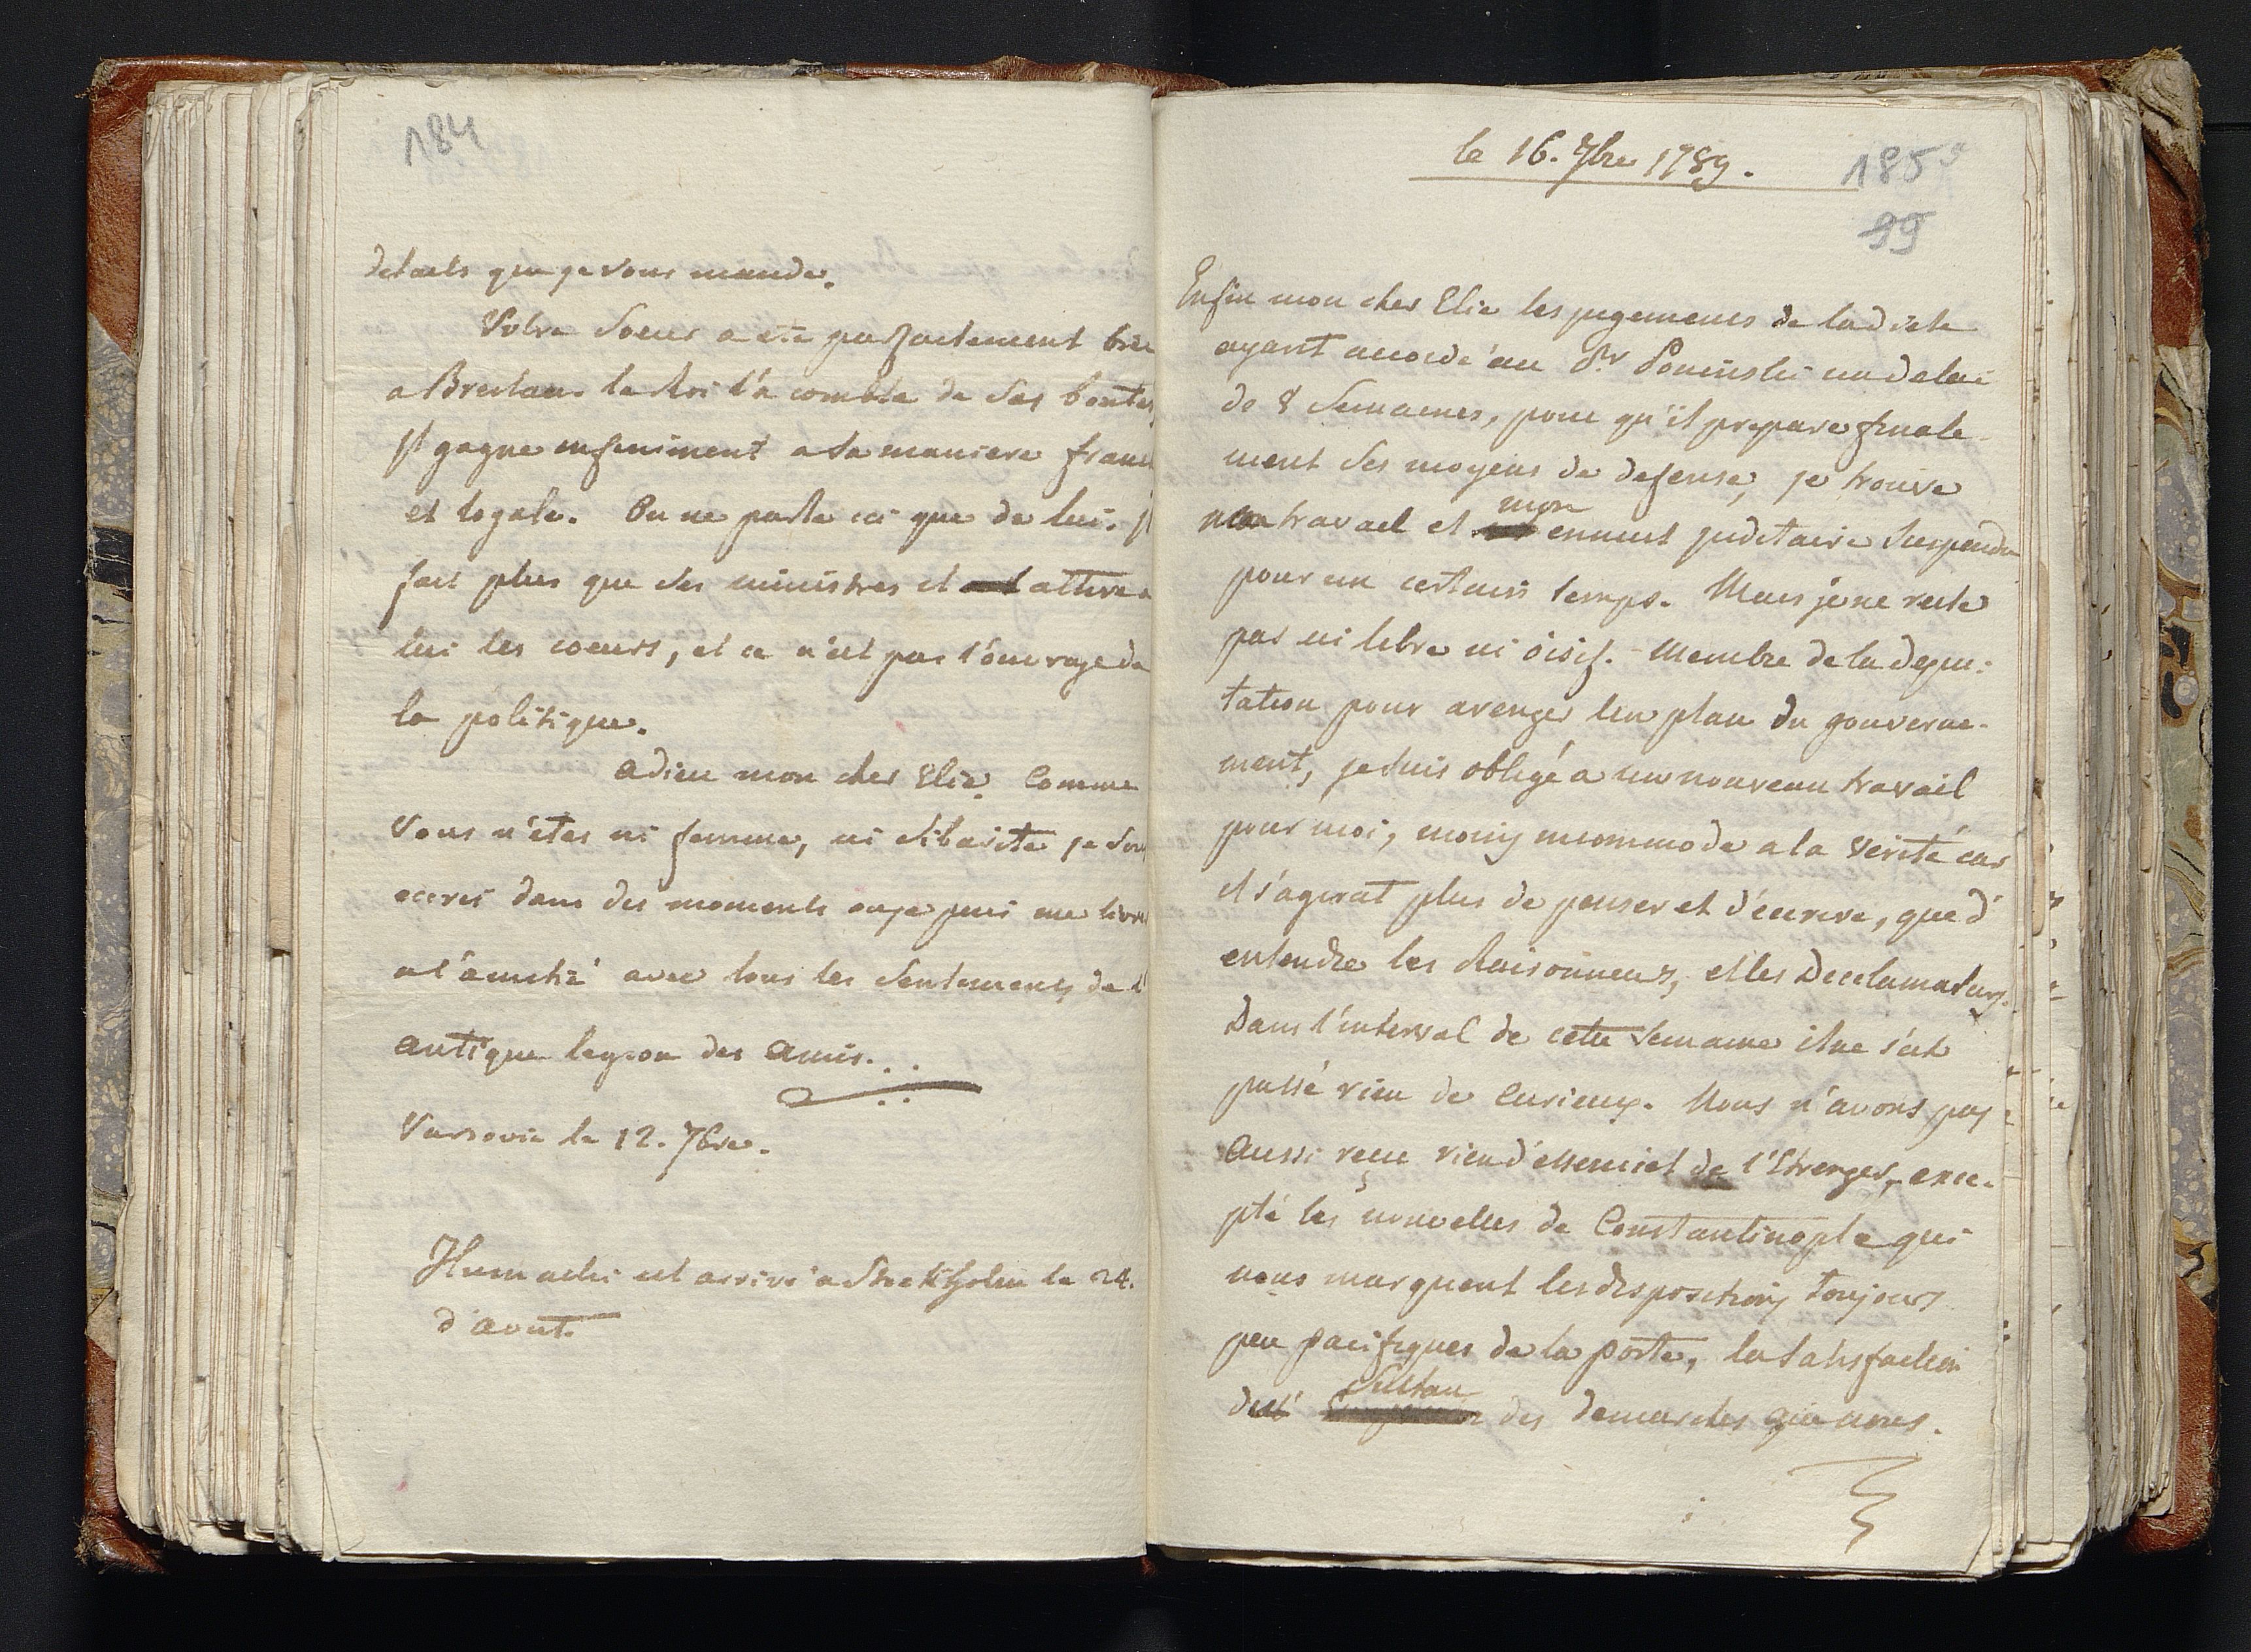 184
details que je vous mande.
Votre Soeur a été parfaitement bien
a Breslau. le Roi l'a comblé de Ses bontés,
Il gagne infiniment a Sa maniere
et loyale. On ne parle ici que de lui. Il
fait plus que Ses ministres et attire a
lui les coeurs, et ce n'est pas l'ouvrage de
la politique.
Adieu mon cher Elie. Comme
Vous n'etes ni femme, ni Sibarite je Vous
ecris dans des moments ou je puis me livrer
a l'amitié avec tous les Sentiments de l'
antique leçon des Amis.
Varsovie le 12. 7bre.
est arrivé a Stockholm le 24.
d'aout.
le 16. 7bre 1789.
185
99
Enfin mon cher Elie les jugements de la diete
ayant accordé au Sr. Poninski un delai
de 8 Semaines, pour qu'il prepare finale-
ment Ses moyens de defense, je trouve
mon travail et mon ennui judiciaire Suspendu
pour un certain temps. Mais je ne reste
pas ni libre ni oisif. Membre de la depu-
tation pour arenger un plan du gouverne-
ment, je Suis obligé a un nouveau travail
pour moi, moins incommode a la verité car
il s'agirat plus de penser et d'écrire, que d'
entendre les Raisonneurs, et les Declamateurs.
Dans l'interval de cette Semaine il ne s'est
passé rien de Curieux. Nous n'avons pas
Aussi reçu rien d'essenciel de l'Etranger, exce-
pté les nouvelles de Constantinople qui
nous marquent les dispositions toujours
peu pacifiques de la porte, la Satisfaction
du Sultan des demarches que nous.